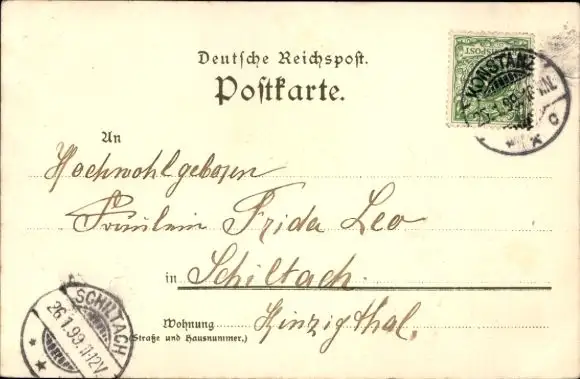 Deutsche Reichspost.
Postkarte.
KONSTANZ
An
Hochwohlgeboren
Fräulein Frida Leo
in Schiltach.
Wohnung Kinzigthal.
(Straße und Hausnummer.)
SCHILTACH
26.1.99.11-12V.